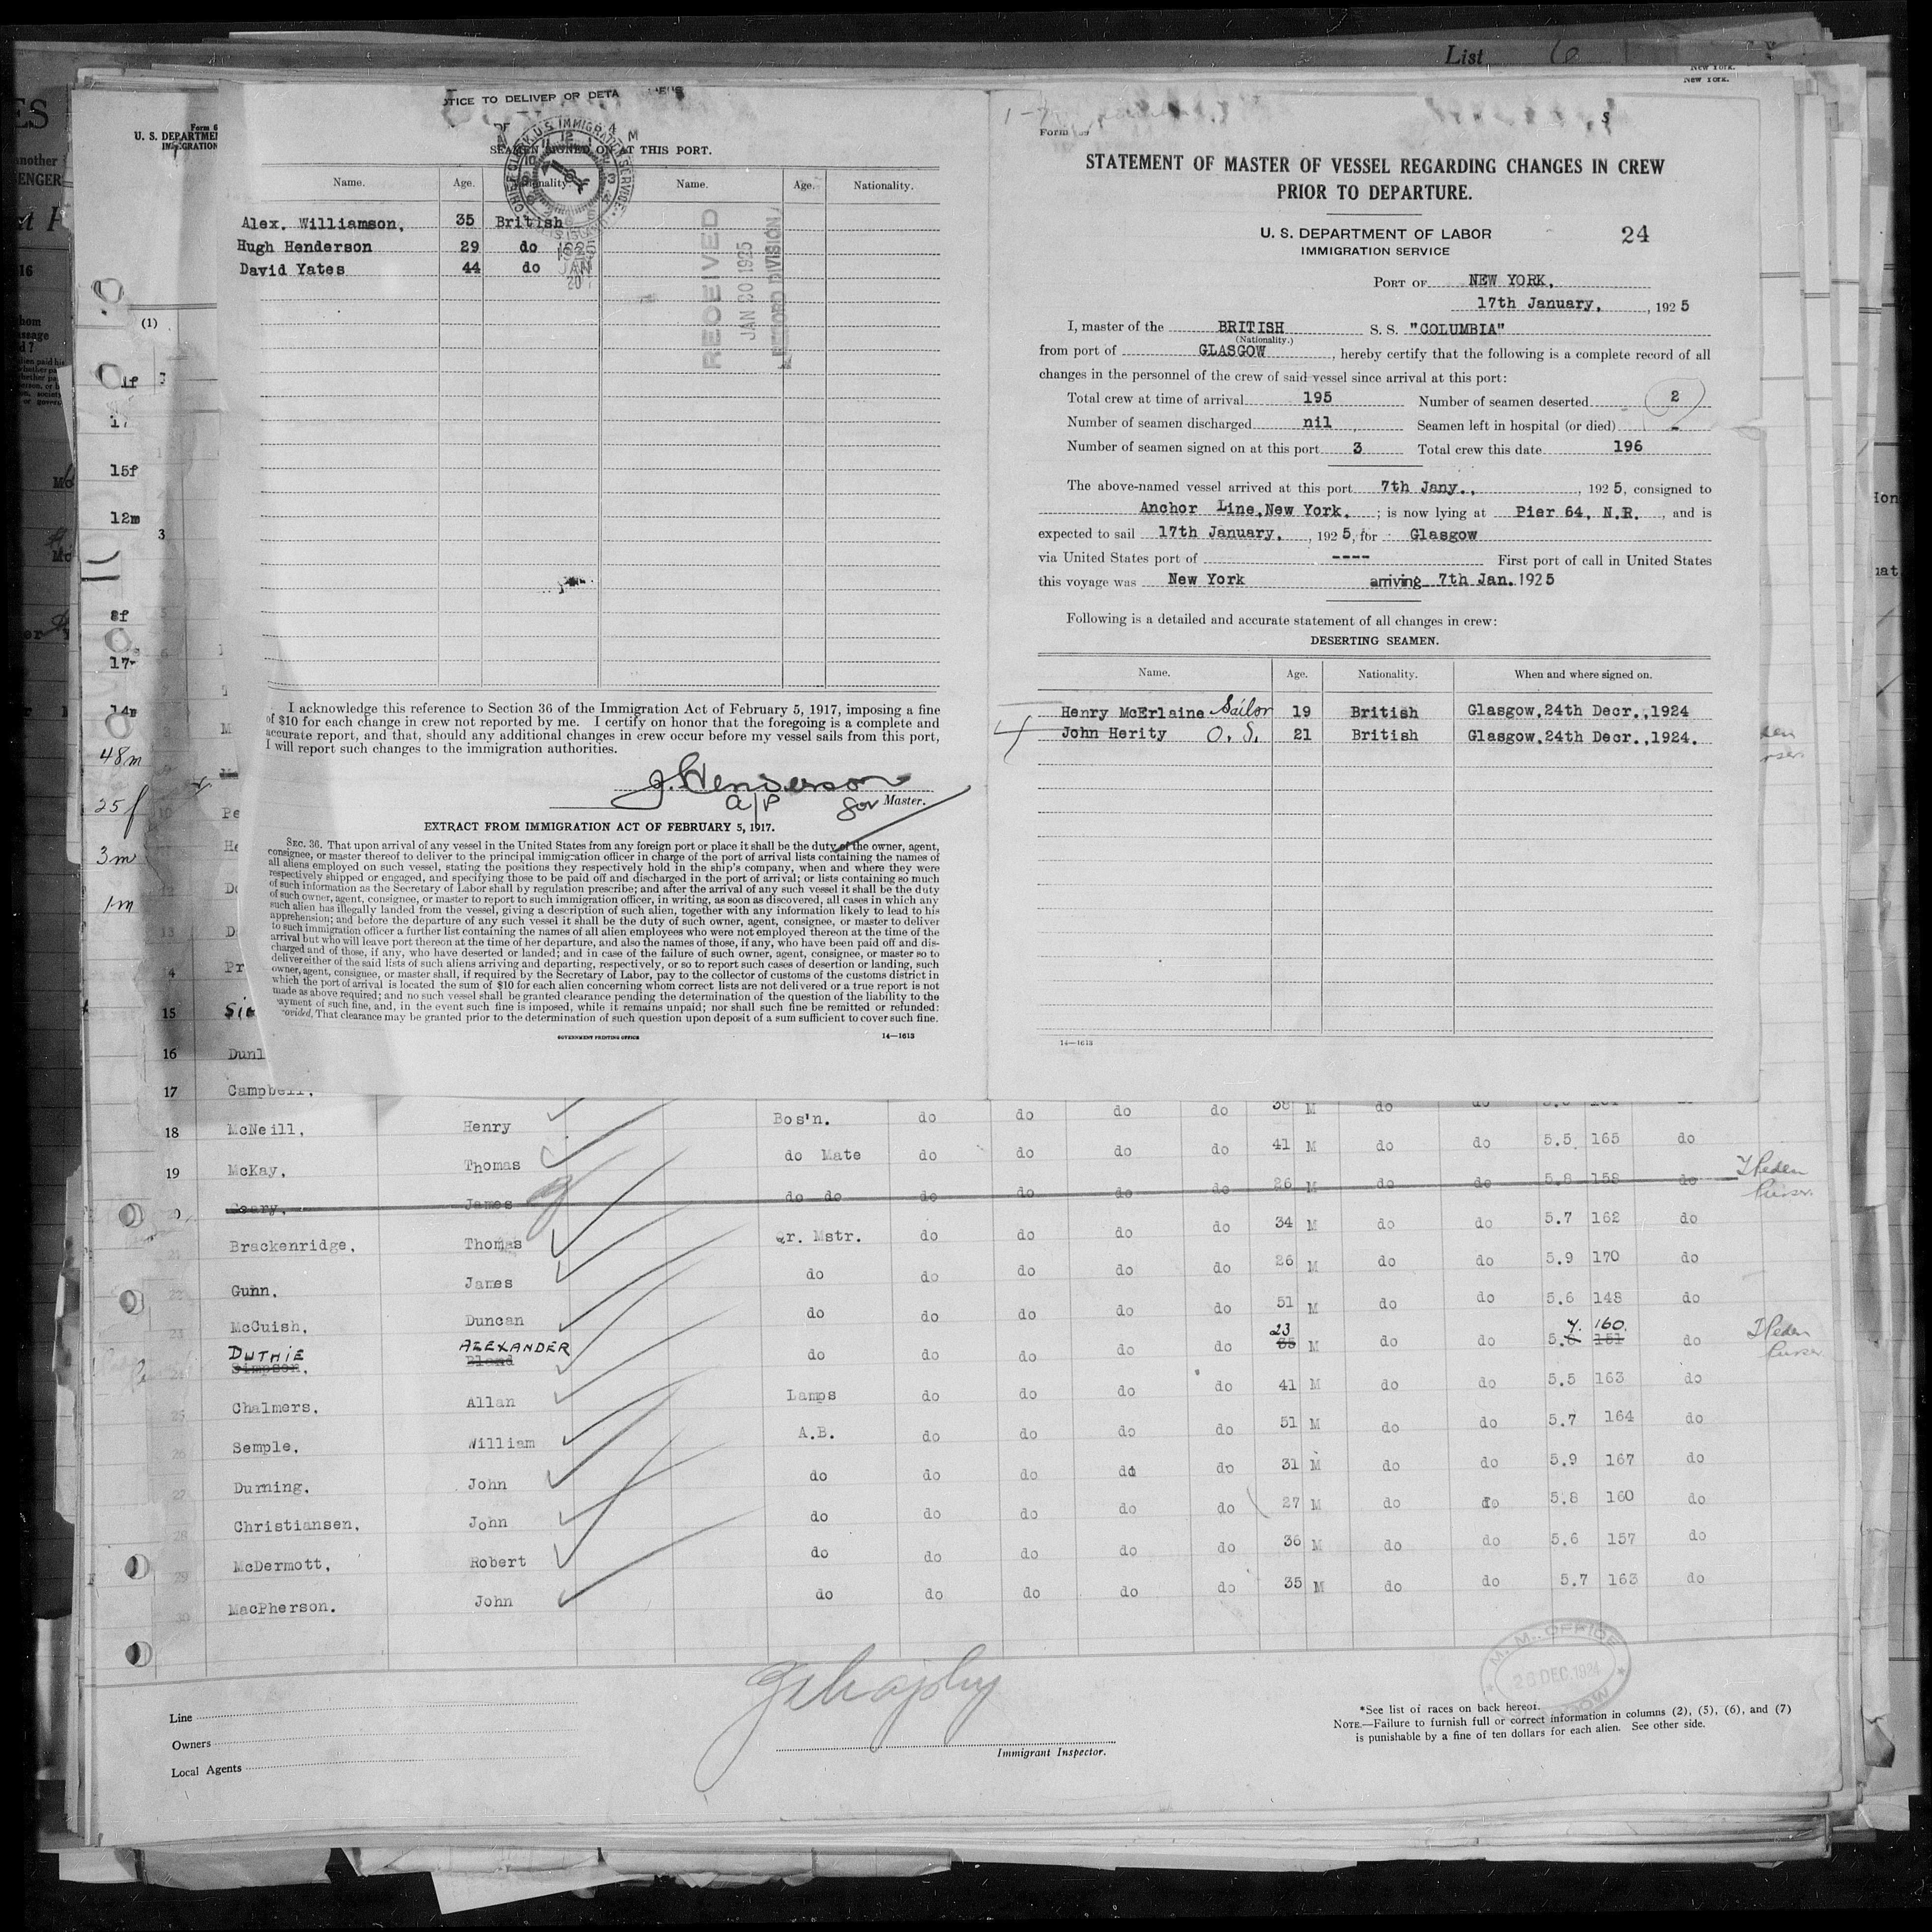 List 6
New York.
New York.
OTICE TO DELIVER OR DETA
SEAMEN SIGNED ON AT THIS PORT.
Name. Age. Nationality. Name. Age. Nationality.
Alex. Williamson, 35 British
Hugh Henderson 29 do
David Yates 44 do
RECEIVED
JAN 30 1925
RECORD DIVISION
I acknowledge this reference to Section 36 of the Immigration Act of February 5, 1917, imposing a fine
of $10 for each change in crew not reported by me. I certify on honor that the foregoing is a complete and
accurate report, and that, should any additional changes in crew occur before my vessel sails from this port,
I will report such changes to the immigration authorities.
J. Henderson
a/p for Master.
EXTRACT FROM IMMIGRATION ACT OF FEBRUARY 5, 1917.
SEC. 36. That upon arrival of any vessel in the United States from any foreign port or place it shall be the duty of the owner, agent,
consignee, or master thereof to deliver to the principal immigration officer in charge of the port of arrival lists containing the names of
all aliens employed on such vessel, stating the positions they respectively hold in the ship's company, when and where they were
respectively shipped or engaged, and specifying those to be paid off and discharged in the port of arrival; or lists containing so much
of such information as the Secretary of Labor shall by regulation prescribe; and after the arrival of any such vessel it shall be the duty
of such owner, agent, consignee, or master to report to such immigration officer, in writing, as soon as discovered, all cases in which any
such alien has illegally landed from the vessel, giving a description of such alien, together with any information likely to lead to his
apprehension; and before the departure of any such vessel it shall be the duty of such owner, agent, consignee, or master to deliver
to such immigration officer a further list containing the names of all alien employees who were not employed thereon at the time of the
arrival but who will leave port thereon at the time of her departure, and also the names of those, if any, who have been paid off and dis-
charged and of those, if any, who have deserted or landed; and in case of the failure of such owner, agent, consignee, or master so to
deliver either of the said lists of such aliens arriving and departing, respectively, or so to report such cases of desertion or landing, such
owner, agent, consignee, or master shall, if required by the Secretary of Labor, pay to the collector of customs of the customs district in
which the port of arrival is located the sum of $10 for each alien concerning whom correct lists are not delivered or a true report is not
made as above required; and no such vessel shall be granted clearance pending the determination of the question of the liability to the
ayment of such fine, and, in the event such fine is imposed, while it remains unpaid; nor shall such fine be remitted or refunded:
ovided, That clearance may be granted prior to the determination of such question upon deposit of a sum sufficient to cover such fine.
GOVERNMENT PRINTING OFFICE 14—1613
Form
STATEMENT OF MASTER OF VESSEL REGARDING CHANGES IN CREW
PRIOR TO DEPARTURE.
U. S. DEPARTMENT OF LABOR 24
IMMIGRATION SERVICE
PORT OF NEW YORK.
17th January, , 1925
I, master of the BRITISH S. S. "COLUMBIA"
(Nationality.)
from port of GLASGOW , hereby certify that the following is a complete record of all
changes in the personnel of the crew of said vessel since arrival at this port:
Total crew at time of arrival 195 Number of seamen deserted 2
Number of seamen discharged nil Seamen left in hospital (or died) -
Number of seamen signed on at this port 3 Total crew this date 196
The above-named vessel arrived at this port 7th Jany., , 1925, consigned to
Anchor Line, New York. ; is now lying at Pier 64, N.R. , and is
expected to sail 17th January. , 1925, for Glasgow
via United States port of ---- First port of call in United States
this voyage was New York arriving 7th Jan. 1925
Following is a detailed and accurate statement of all changes in crew:
DESERTING SEAMEN.
Name. Age. Nationality. When and where signed on.
Henry McErlaine Sailor 19 British Glasgow, 24th Decr., 1924
John Herity O. S. 21 British Glasgow, 24th Decr., 1924.
14—1613
Form 6
U. S. DEPARTME
IMMIGRATION
(1)
15f
12m
8f
48m
25f
3m
1m
15 Si
16 Dunl
17 Campbell,
18 McNeill, Henry Bos'n. do do do do 38 M do
19 McKay, Thomas do Mate do do do do 41 M do do 5.5 165 do
James do do do do do do 26 M do do 5.8 158 do Purser.
21 Brackenridge, Thomas Qr. Mstr. do do do do 34 M do do 5.7 162 do
22 Gunn, James do do do do do 26 M do do 5.9 170 do
23 McCuish, Duncan do do do do do 51 M do do 5.6 148 do
24 DUTHIE Simpson, ALEXANDER do do do do do 23 M do do 5. 7. 160. 151 do Purser.
25 Chalmers, Allan Lamps do do do do 41 M do do 5.5 163 do
26 Semple, William A.B. do do do do 51 M do do 5.7 164 do
27 Durning, John do do do do do 31 M do do 5.9 167 do
28 Christiansen, John do do do do do 27 M do do 5.8 160 do
29 McDermott, Robert do do do do do 36 M do do 5.6 157 do
30 MacPherson. John do do do do do 35 M do do 5.7 163 do
M. M. OFFICE
26 DEC. 1924
Line
Owners
Local Agents
Immigrant Inspector.
*See list of races on back hereof.
NOTE.—Failure to furnish full or correct information in columns (2), (5), (6), and (7)
is punishable by a fine of ten dollars for each alien. See other side.